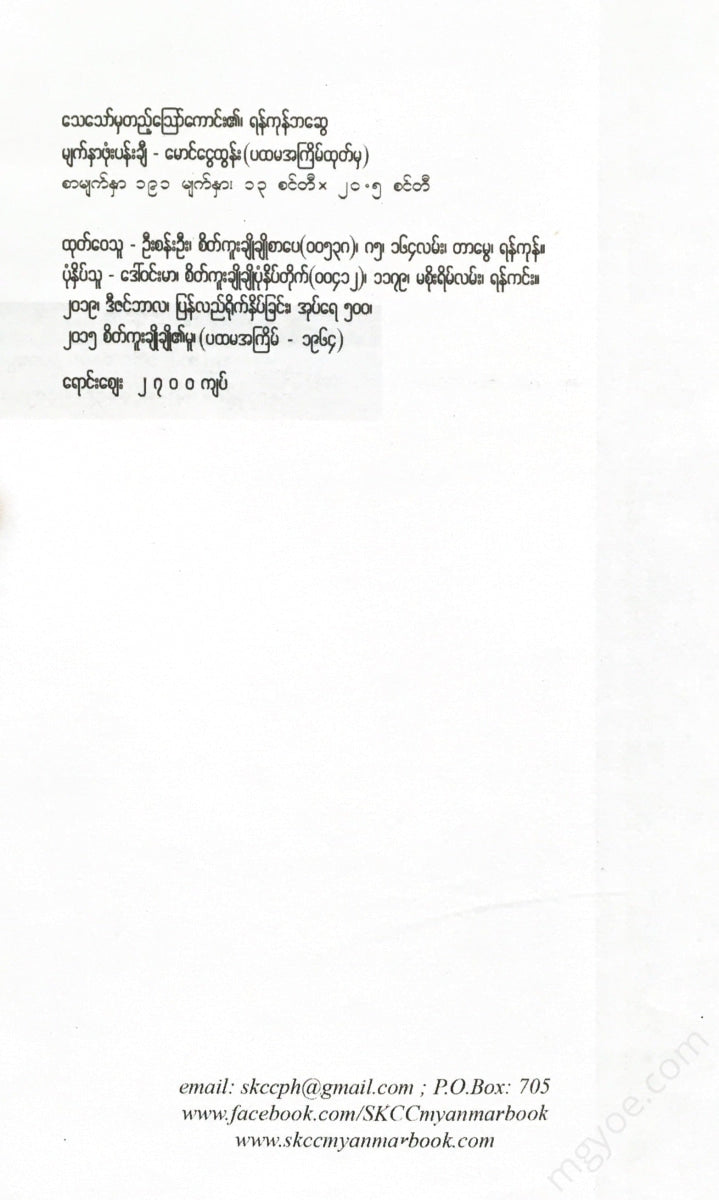 သေသော်မှတည့်ဩော်ကောင်း၏၊ ရန်ကုန်ဘဆွေ
မျက်နှာဖုံးပန်းချီ - မောင်ငွေထွန်း (ပထမအကြိမ်ထုတ်မှ)
စာမျက်နှာ ၁၉၁ မျက်နှာ၊ ၁၃ စင်တီ × ၂၀.၅ စင်တီ
ထုတ်ဝေသူ - ဦးစန်းဦး၊ စိတ်ကူးချိုချိုစာပေ(၀၀၅၃၈)၊ ဂ၅၊ ၁၆၄လမ်း၊ တာမွေ၊ ရန်ကုန်။
ပုံနှိပ်သူ - ဒေါ်ဝင်းမာ၊ စိတ်ကူးချိုချိုပုံနှိပ်တိုက်(၀၀၄၁၂)၊ ၁၁၇၉၊ မစိုးရိမ်လမ်း၊ ရန်ကင်း။
၂၀၁၉၊ ဒီဇင်ဘာလ၊ ပြန်လည်ရိုက်နှိပ်ခြင်း၊ အုပ်ရေ ၅၀၀၊
၂၀၁၅ စိတ်ကူးချိုချို၏မူ၊ (ပထမအကြိမ် - ၁၉၆၄)
ရောင်းဈေး ၂၇၀၀ ကျပ်
email: skccph@gmail.com ; P.O.Box: 705
www.facebook.com/SKCCmyanmarbook
www.skccmyanmarbook.com
mgyoe.com